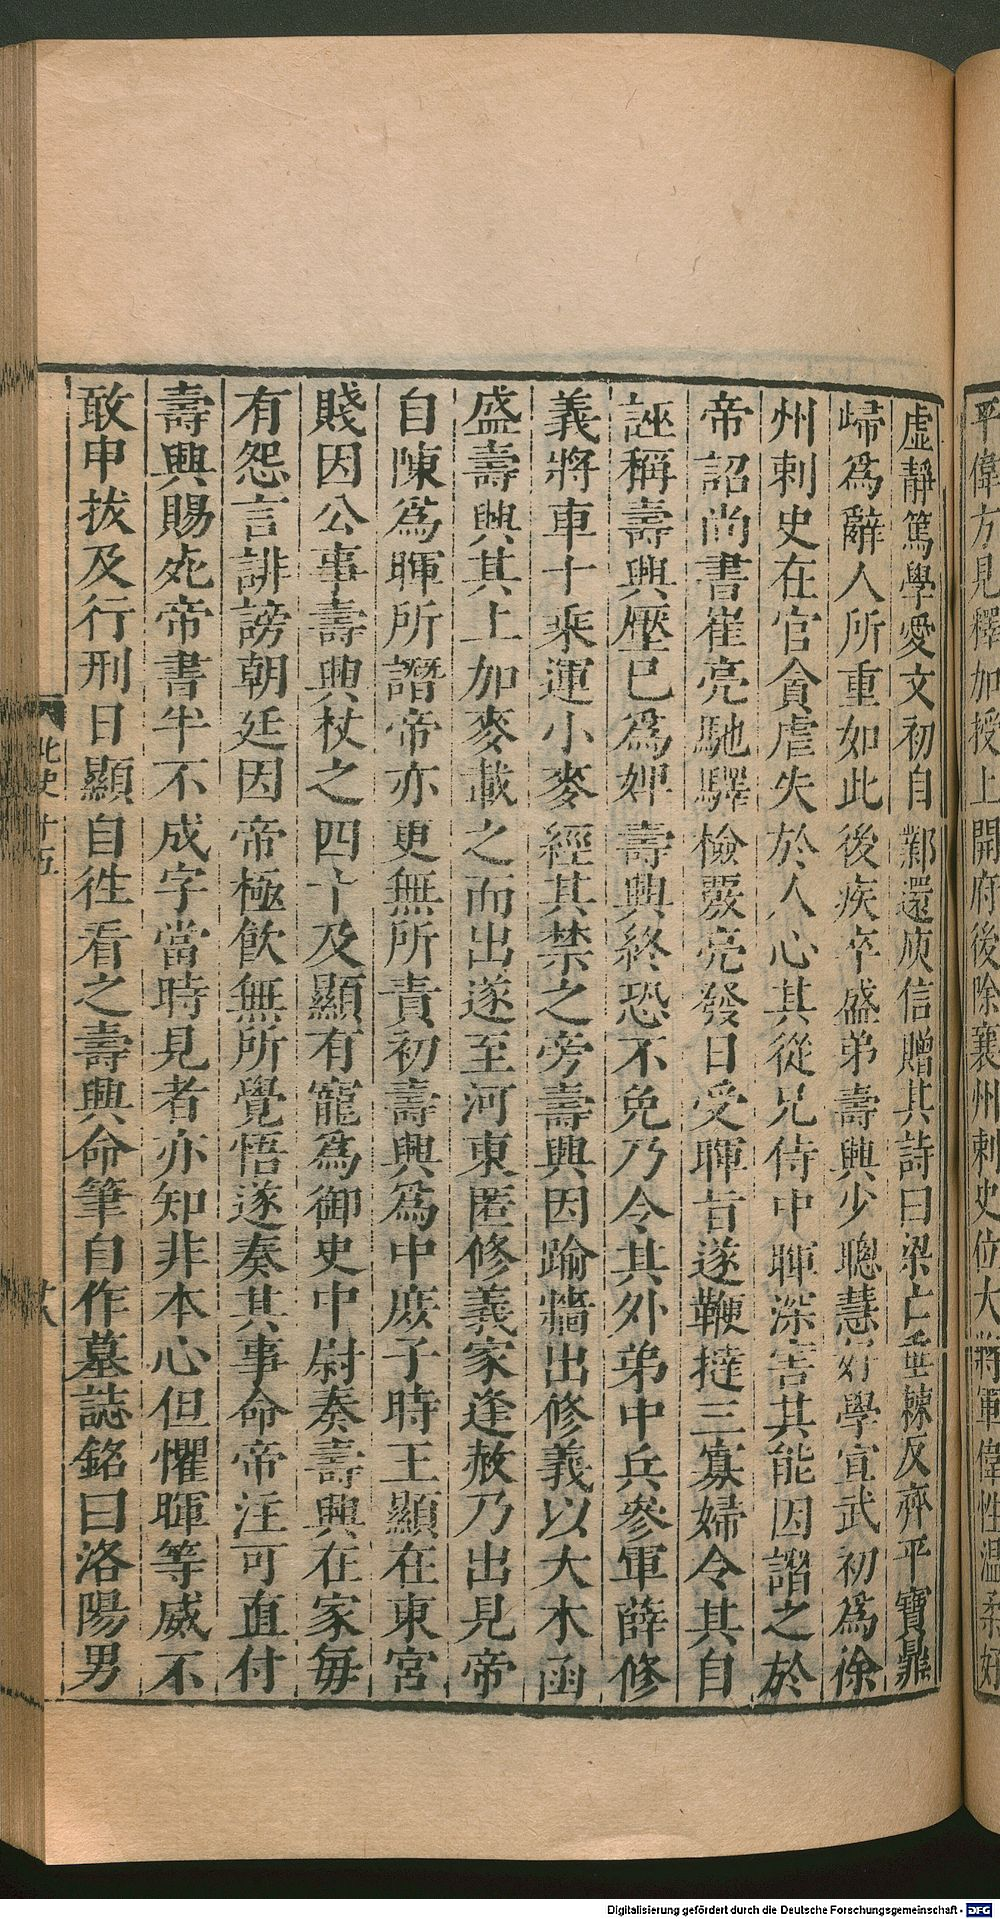 平偉方見釋加授上開府後除襄州刺史位大將軍偉性溫柔好
虛靜篤學愛文初自鄴還庾信贈其詩曰梁亡垂棘反齊平寶鼎
歸爲辭人所重如此後疾卒盛弟壽興少聰慧好學宣武初爲徐
州刺史在官貪虐失於人心其從兄侍中暉深害其能因譖之於
帝詔尚書崔亮馳驛檢覈亮發日受暉旨遂鞭撻三寡婦令其自
誣稱壽興壓已爲婢壽興終恐不免乃令其外弟中兵參軍薛修
義將車十乘運小麥經其禁之旁壽興因踰牆出修義以大木函
盛壽興其上加麥載之而出遂至河東匿修義家逢赦乃出見帝
自陳爲暉所譖帝亦更無所責初壽興爲中庶子時王顯在東宮
賤因公事壽興杖之四十及顯有寵爲御史中尉奏壽興在家每
有怨言誹謗朝廷因帝極飲無所覺悟遂奏其事命帝注可直付
壽興賜死帝書半不成字當時見者亦知非本心但懼暉等威不
敢申拔及行刑日顯自徃看之壽興命筆自作墓誌銘曰洛陽男
北史十五
Digitalisierung gefördert durch die Deutsche Forschungsgemeinschaft - DFG